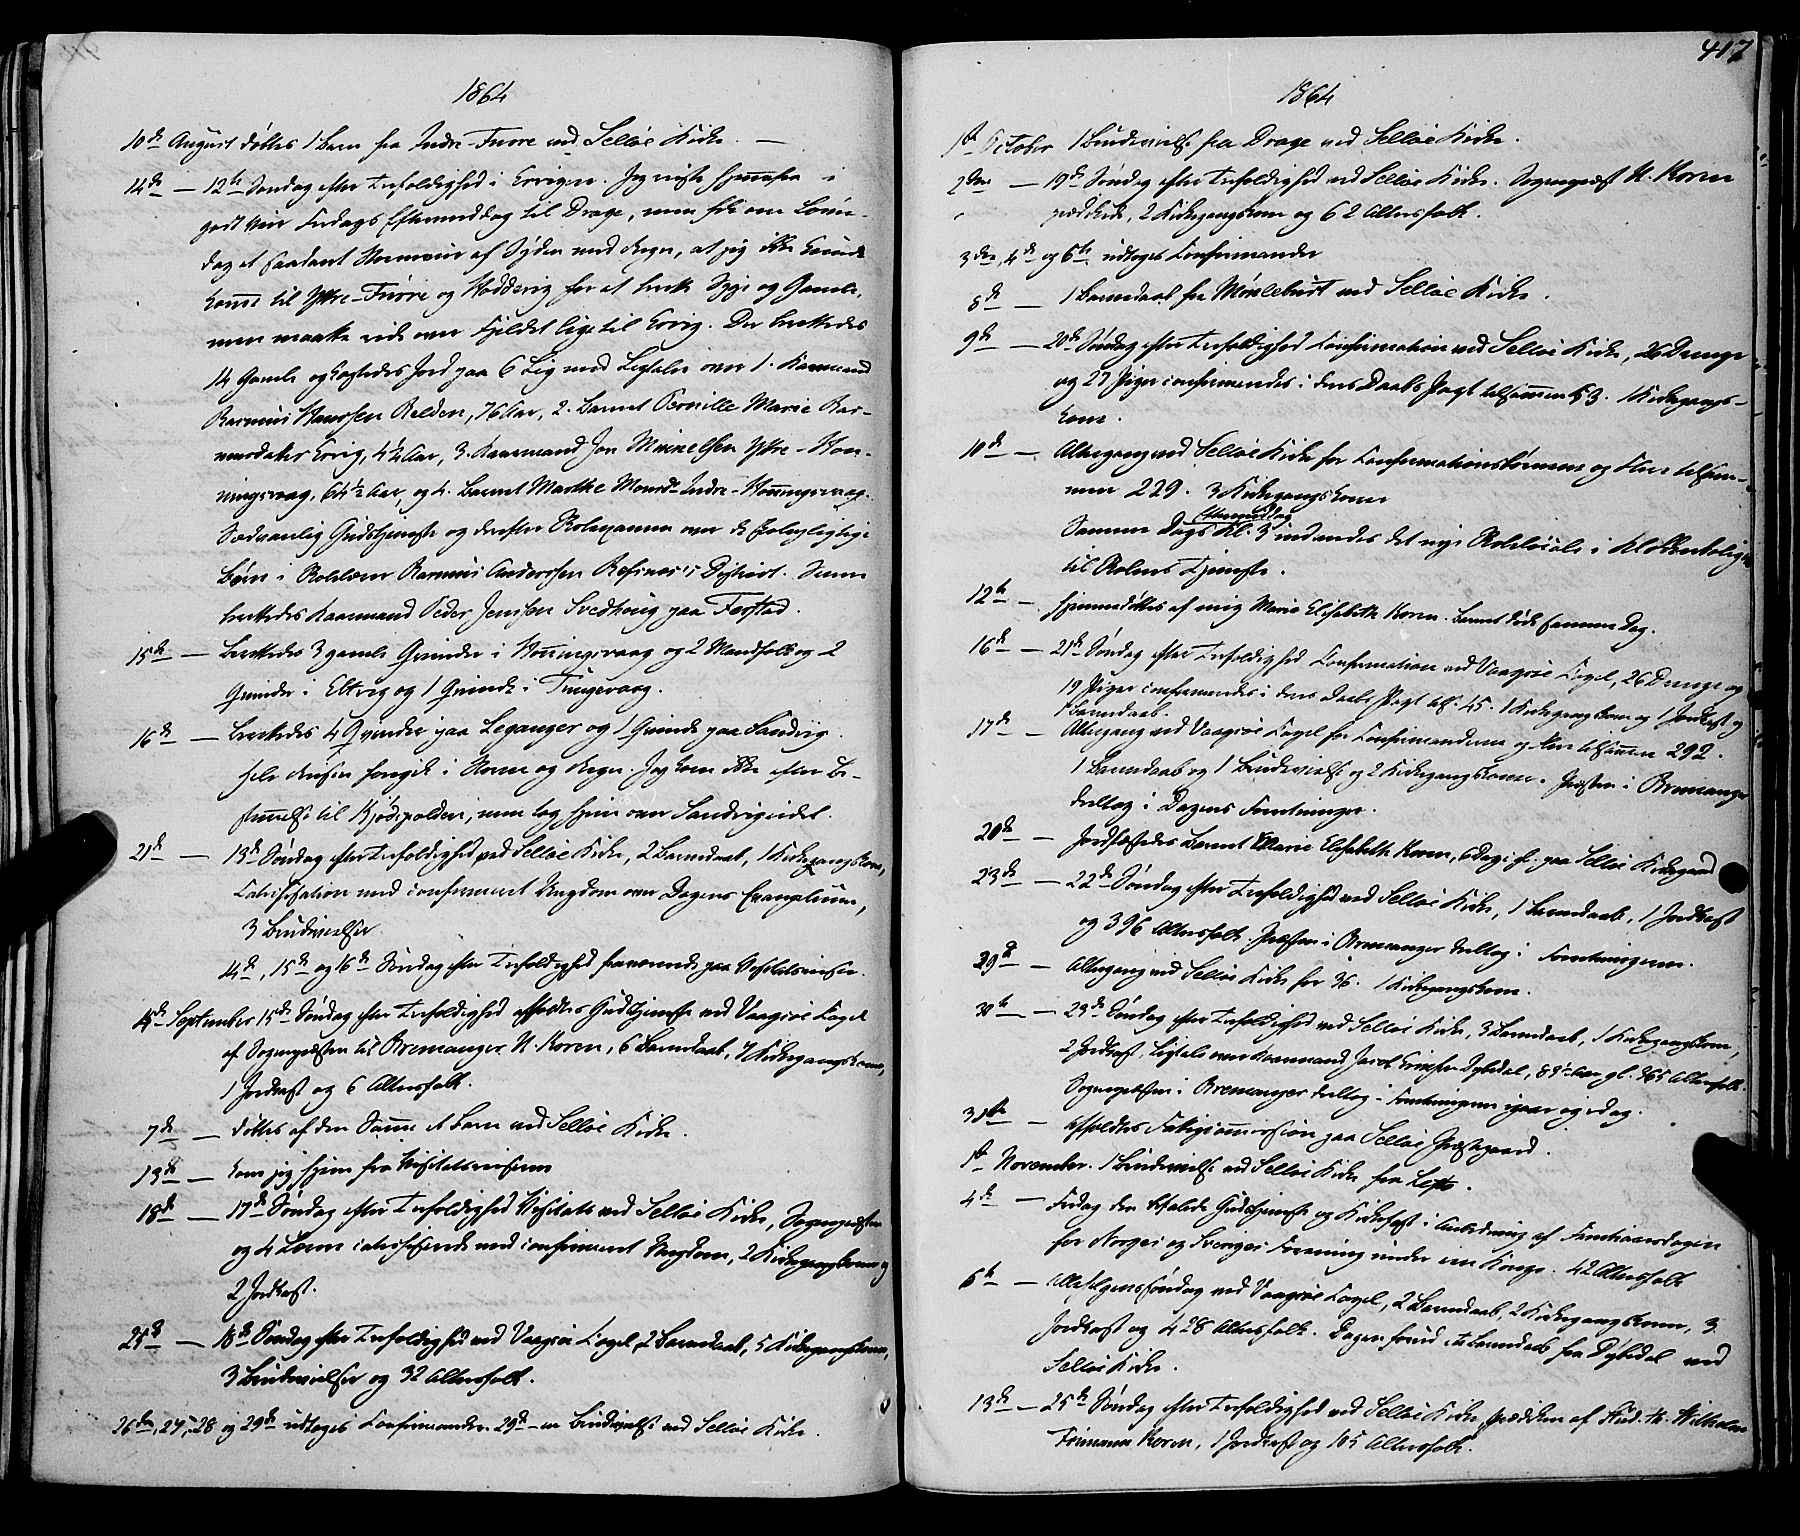 1864
10de August døbtes 1 Barn fra Indre-Furre ved Selløe Kirke. —
14de — 12te Søndag efter Trefoldighed i Ervigen. Jeg reiste hjemmefra i
godt Veir Fredags Eftermiddag til Drage, men fik om Løver-
dag et saadant Stormveir af Syden med Regn, at jeg ikke kunde
komme til Ytre-Furre og Hoddevig for at berette Syge og Gamle,
men maatte ride over Fjeldet lige til Ervig. Der berettedes
14 Gamle og kastedes Jord paa 6 Lig med Ligtaler over 1. Kaarmand
Rasmus Hanssen Relden, 76 Aar, 2. Barnet Pernille Marie Ras-
musdatter Ervig, 4½ Aar, 3. Kaarmand Jon Mikkelsen Ytre-Hon-
ningsvaag, 64½ Aar, og 4. Barnet Marthe Monsd. Indre-Honningsvaag.
Sædvanlig Gudstjeneste og derefter Skolexamen over de skolepligtige
Børn i Skolelærer Rasmus Anderssen Refsnes's Distrikt. Senere
berettedes Kaarmand Peder Jenssen Svedhoug paa Forstad.
15de — Berettedes 3 gamle Qvinder i Honningsvaag og 2 Mandfolk og 2
Qvinder i Eltvig og 1 Qvinde i Tungevaag.
16de — Berettedes 4 Qvinder paa Leganger og 1 Qvinde paa Sandvig.
Hele Reisen foregik i Storm og Regn. Jeg kom ikke efter Be-
stemmelse til Kjødspollen, men tog hjem over Sandvigeidet.
21de — 13de Søndag efter Trefoldighed ved Selløe Kirke, 2 Barnedaab, 1 Kirkegangskone,
Catechisation med confirmeret Ungdom over Dagens Evangelium,
3 Brudevielser.
14de, 15de og 16de Søndag efter Trefoldighed fraværende paa Visitatsreiser.
4de September 15de Søndag efter Trefoldighed afholdtes Gudstjeneste ved Vaagsøe Capel
af Sognepræsten til Bremanger N. Koren, 6 Barnedaab, 4 Kirkegangskoner,
1 Jordkast og 6 Altersfolk.
7de — døbtes af den Samme et Barn ved Selløe Kirke.
13de — kom jeg hjem fra Visitatsreisen
18de — 17de Søndag efter Trefoldighed Visitats ved Selløe Kirke, Sognepræsten
og 4 Lærere catechiserede med confirmeret Ungdom, 2 Kirkegangskoner og
2 Jordkast.
25de — 18de Søndag efter Trefoldighed ved Vaagsøe Capel, 2 Barnedaab, 5 Kirkegangskoner,
3 Brudevielser og 32 Altersfolk.
26de, 27, 28 og 29de udtoges Confirmander. 29de en Brudevielse ved Selløe Kirke.
417
1864
1ste October 1 Brudevielse fra Drage ved Selløe Kirke.
2den — 19de Søndag efter Trefoldighed ved Selløe Kirke. Sognepræst N. Koren
prædikede, 2 Kirkegangskoner og 62 Altersfolk.
3die, 4de og 5te udtoges Confirmander
8de — 1 Barnedaab fra Monlebust ved Selløe Kirke.
9de — 20de Søndag efter Trefoldighed Confirmation ved Selløe Kirke, 26 Drenge
og 27 Piger confirmeredes i deres Daabs Pagt tilsammen 53. 1 Kirkegangs-
kone.
10de — Altergang ved Selløe Kirke for Confirmationsbørnene og Flere tilsam-
men 229. 3 Kirkegangskoner
Samme Dags Eftermiddag Kl. 3 indviedes det nye Skolelocale i Klokkerboligen
til Skolens Tjeneste.
12te — Hjemmedøbtes af mig Marie Elisabeth Koren. Barnet døde samme Dag.
16de — 21de Søndag efter Trefoldighed Confirmation ved Vaagsøe Capel, 26 Drenge og
19 Piger confirmeredes i deres Daabs Pagt tils. 45. 1 Kirkegangskone og 1 Jordkast og
1 Barnedaab.
17de — Altergang ved Vaagsøe Capel for Confirmanderne og Flere tilsammen 292.
1 Barnedaab og 1 Brudevielse og 2 Kirkegangskoner. Præsten i Bremanger
deeltog i Dagens Forretninger.
20de — Jordfæstedes Barnet Marie Elisabeth Koren, 6 Dage gl. paa Selløe Kirkegaard
23de — 22de Søndag efter Trefoldighed ved Selløe Kirke, 1 Barnedaab, 1 Jordkast
og 396 Altersfolk. Præsten i Bremanger deeltog i Forretningerne.
29de — Altergang ved Selløe Kirke for 36. 1 Kirkegangskone.
30te — 23de Søndag efter Trefoldighed ved Selløe Kirke, 3 Barnedaab, 1 Kirkegangskone,
2 Jordkast, Ligtale over Kaarmand Jacob Dybedal, Aar gl. 365 Altersfolk.
Sognepræsten i Bremanger deeltog i Forretningerne igaar og idag.
31te — Afholdtes Fattigcommission paa Selløe Præstegaard.
1ste November. 1 Brudevielse ved Selløe Kirke fra Lefto.
4de — Fredag den befalede Gudstjeneste og Kirkefest i Anledning af Femtiaarsdagen
for Norges og Sveriges Forening under een Konge. 42 Altersfolk
6te — Allehelgenssøndag ved Vaagsøe Capel, 2 Barnedaab, 2 Kirkegangskoner, 3
Jordkast og 428 Altersfolk. Dagen forud et Barnedaab fra Dybedal ved
Selløe Kirke.
13de — 25de Søndag efter Trefoldighed ved Selløe Kirke, Prædiken af Stud. th. Wilhelm
Frimann Koren, 1 Jordkast og 105 Altersfolk.